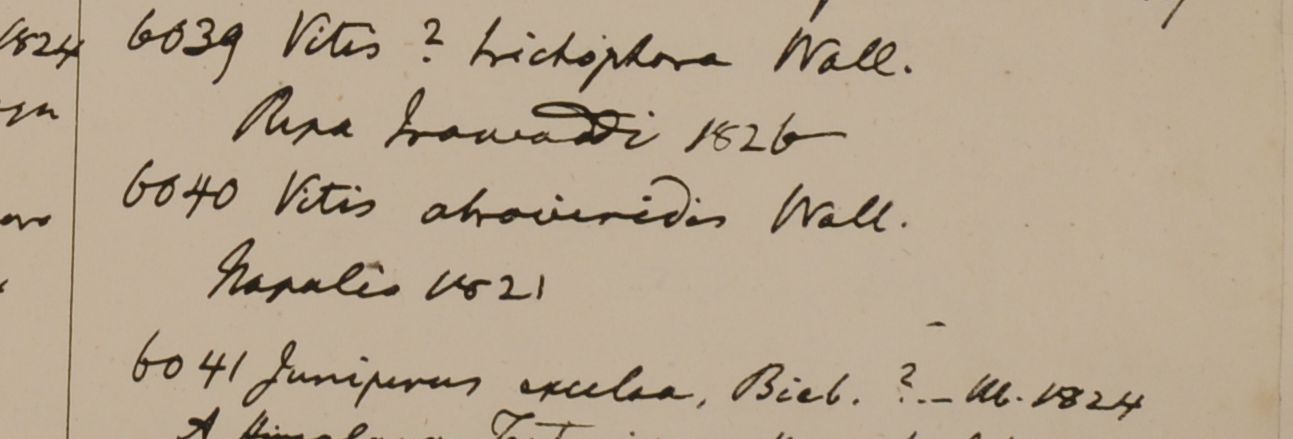 1824
6039 Vitis ? trichophora Wall.
Ripa Irawaddi 1826
6040 Vitis atroviridis Wall.
Napalia 1821
6041 Juniperus excelsa, Bieb. ? — 1824
A Himalaya